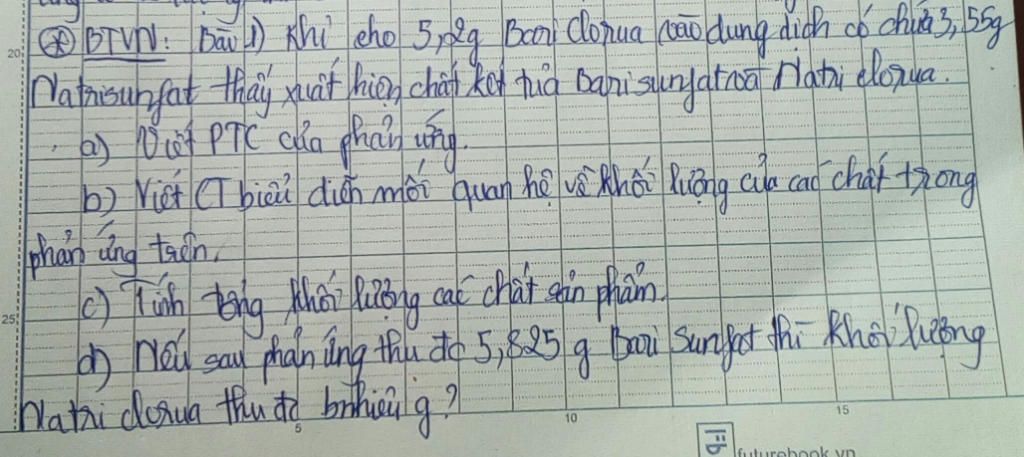 ⊛ BTVN: Bài 1) Khi cho 5,2g Bari Clorua vào dung dịch có chứa 3,55g
Natrisunfat thấy xuất hiện chất kết tủa barisunfat và Natri clorua.
a) Viết PTC của phản ứng.
b) Viết CT biểu diễn mối quan hệ về khối lượng của các chất trong
phản ứng trên.
c) Tính tổng khối lượng các chất sản phẩm.
d) Nếu sau phản ứng thu đc 5,825 g Bari Sunfat thì khối lượng
Natri clorua thu đc bnhiêu g?
20
25
5
10
15
futurebook.vn